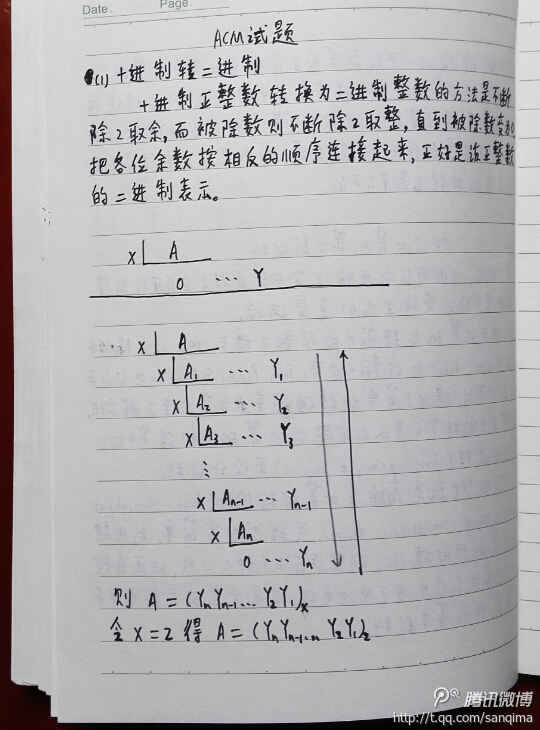 Date Page
ACM试题
(1) 十进制转二进制
十进制正整数转换为二进制整数的方法是不断
除2取余,而被除数则不断除2取整,直到被除数变为0
把各位余数按相反的顺序连接起来,正好是该正整数
的二进制表示。
X A
0 … Y
X A
X A₁ … Y₁
X A₂ … Y₂
X A₃ … Y₃
⋮
X Aₙ₋₁ … Yₙ₋₁
X Aₙ
0 … Yₙ
则 A = (YₙYₙ₋₁… Y₂Y₁)ₓ
令 X = 2 得 A = (YₙYₙ₋₁… Y₂Y₁)₂
腾讯微博
http://t.qq.com/sanqima